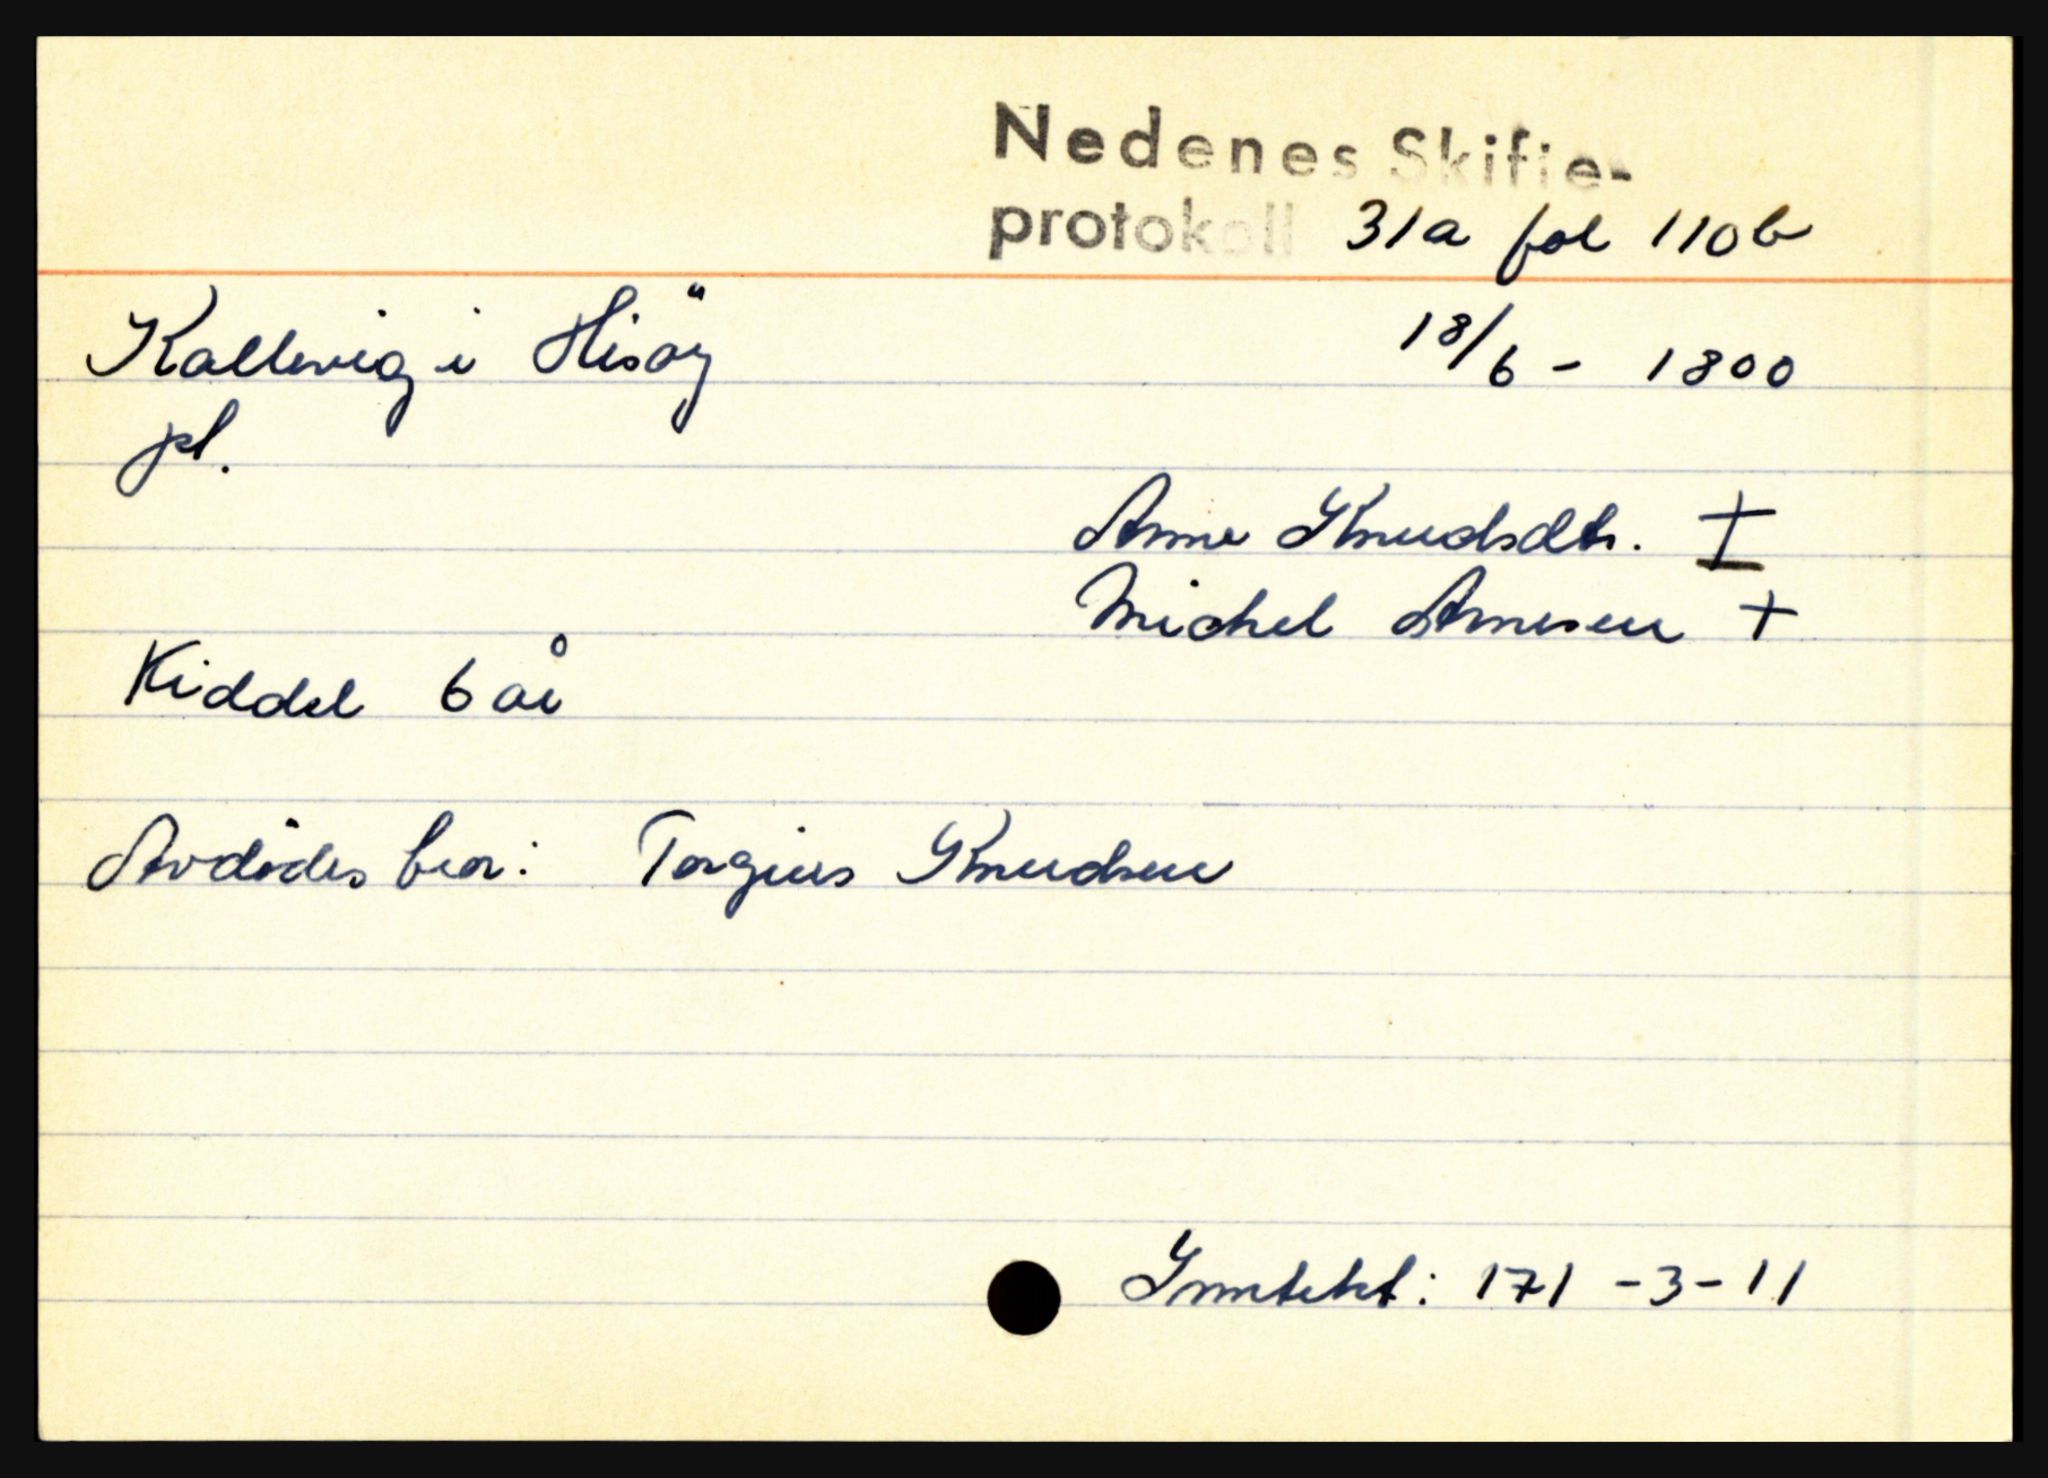 Nedenes Skifte-
protokoll 31a fol 110b
Kallevig i Hisöy 18/6 - 1800
pl.
Anne Knudsdtr. +
Michel Arnesen +
Kiddel 6 år
Avdödes bror: Torgius Knudsen
Inntekt: 171 - 3 - 11